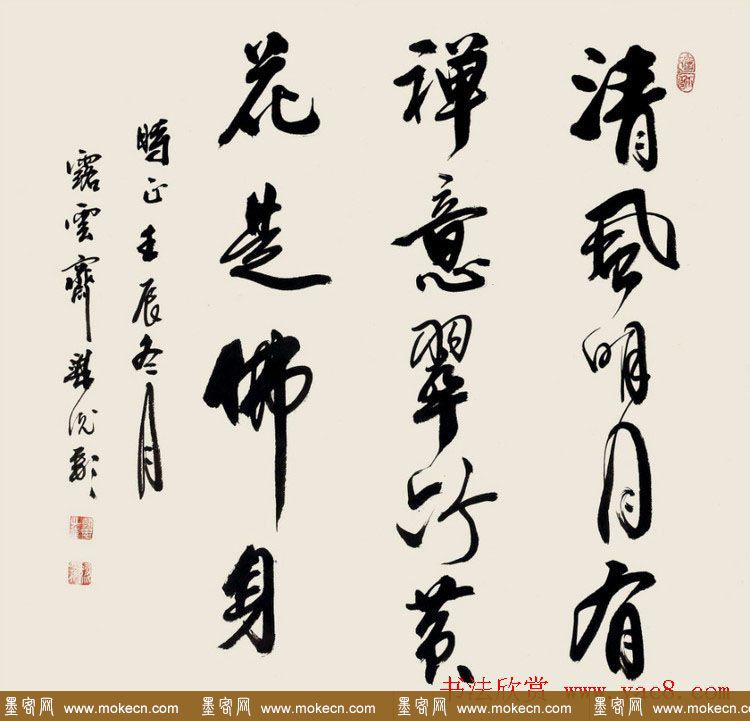 清風明月有
禪意翠竹黃
花是佛身
時在壬辰冬月
露雲齋
書法欣赏 www.yac8.com
墨客网 www.mokecn.com 墨客网 www.mokecn.com 墨客网 www.mokecn.com 墨客网 www.mokecn.com